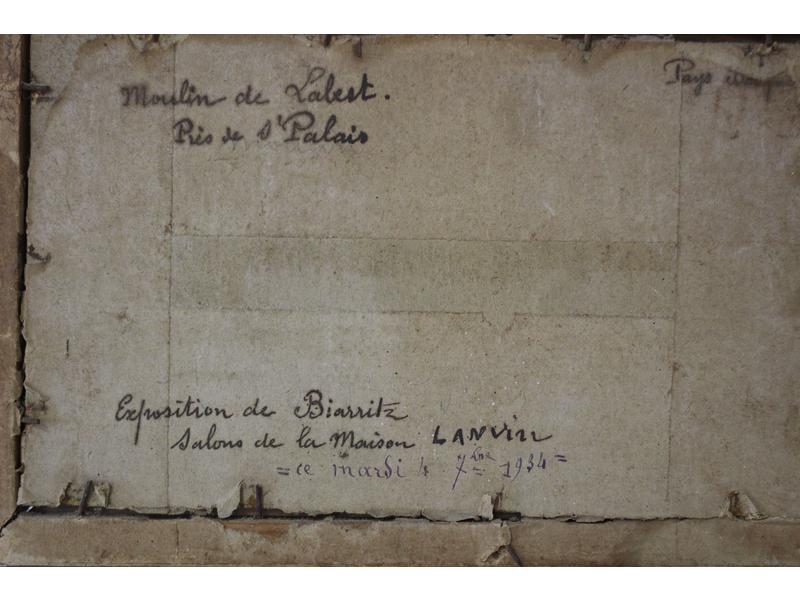 Moulin de Labest.
Pays
Près de St Palais
Exposition de Biarritz
Salons de la Maison LANVIN
= ce mardi 4 7bre 1934 =